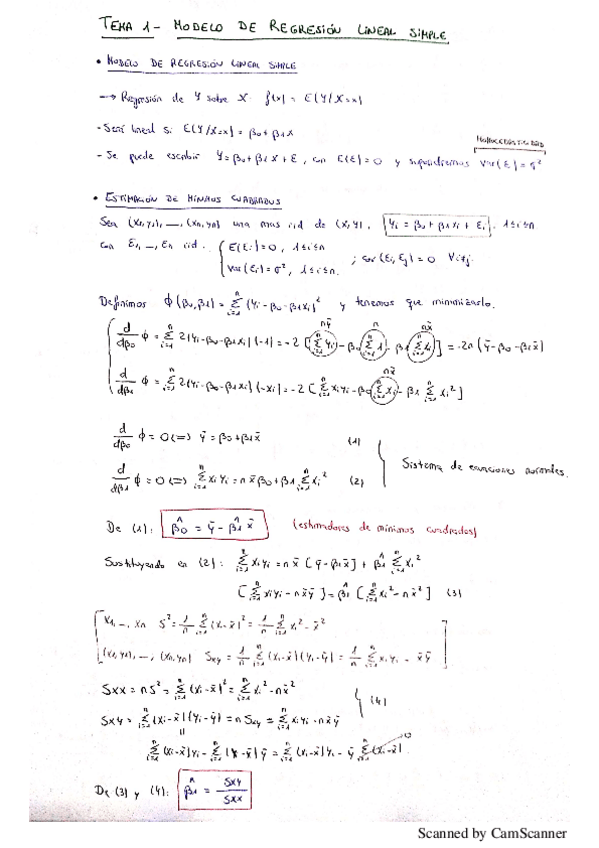 TEMA 1 - MODELO DE REGRESIÓN LINEAL SIMPLE
• MODELO DE REGRESIÓN LINEAL SIMPLE
→ Regresión de Y sobre X f(x) = E(Y/X=x)
- Será lineal si E(Y/X=x) = β0 + β1x
HOMOCEDASTICIDAD
- Se puede escribir Y = β0 + β1x + ε, con E(ε) = 0 y supondremos Var(ε) = σ²
• ESTIMACIÓN DE MÍNIMOS CUADRADOS
Sea (x1,y1), ..., (xn,yn) una mas iid de (X,Y). yi = β0 + β1xi + εi, 1≤i≤n
con ε1, ..., εn iid. { E(εi) = 0, 1≤i≤n
Var(εi) = σ², 1≤i≤n. ; cov(εi, εj) = 0 ∀i≠j.
Definimos ϕ(β0,β1) = Σ(i=1..n) (yi - β0 - β1xi)² y tenemos que minimizarlo.
nȳ n nx̄
d/dβ0 ϕ = Σ(i=1..n) 2(yi - β0 - β1xi)(-1) = -2 [Σ(i=1..n) yi - β0 Σ(i=1..n) 1 - β1 Σ(i=1..n) xi] = -2n (ȳ - β0 - β1x̄)
nx̄
d/dβ1 ϕ = Σ(i=1..n) 2(yi - β0 - β1xi)(-xi) = -2 [Σ(i=1..n) xiyi - β0 Σ(i=1..n) xi - β1 Σ(i=1..n) xi²]
d/dβ0 ϕ = 0 (=) ȳ = β0 + β1x̄ (1)
Sistema de ecuaciones normales.
d/dβ1 ϕ = 0 (=) Σ(i=1..n) xiyi = n x̄ β0 + β1 Σ(i=1..n) xi² (2)
De (1): β̂0 = ȳ - β̂1 x̄ (estimadores de mínimos cuadrados)
Sustituyendo en (2): Σ(i=1..n) xiyi = n x̄ [ȳ - β̂1x̄] + β̂1 Σ(i=1..n) xi²
[Σ(i=1..n) xiyi - n x̄ȳ] = β̂1 [Σ(i=1..n) xi² - n x̄²] (3)
x1, ..., xn S² = 1/n Σ(i=1..n) (xi - x̄)² = 1/n Σ(i=1..n) xi² - x̄²
(x1,y1), ..., (xn,yn) Sxy = 1/n Σ(i=1..n) (xi - x̄)(yi - ȳ) = 1/n Σ(i=1..n) xiyi - x̄ȳ
Sxx = nS² = Σ(i=1..n) (xi - x̄)² = Σ(i=1..n) xi² - nx̄²
(4)
Sxy = Σ(i=1..n) (xi - x̄)(yi - ȳ) = n Sxy = Σ(i=1..n) xiyi - n x̄ȳ
=
Σ(i=1..n) (xi - x̄)yi - Σ(i=1..n) (xi - x̄)ȳ = Σ(i=1..n) (xi - x̄)yi - ȳ Σ(i=1..n) (xi - x̄). 0
De (3) y (4): β̂1 = Sxy/Sxx
Scanned by CamScanner